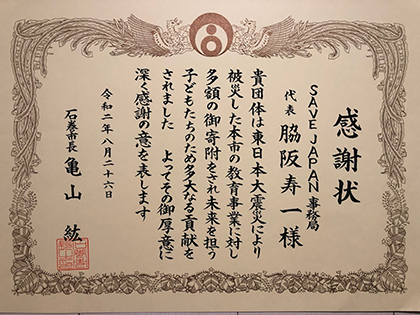 感謝状
SAVE JAPAN 事務局
代表 脇阪寿一様
貴団体は東日本大震災により
被災した本市の教育事業に対し
多額の御寄附をされ未来を担う
子どもたちのため多大なる貢献を
されました よってその御厚意に
深く感謝の意を表します
令和二年八月二十六日
石巻市長 亀山 紘